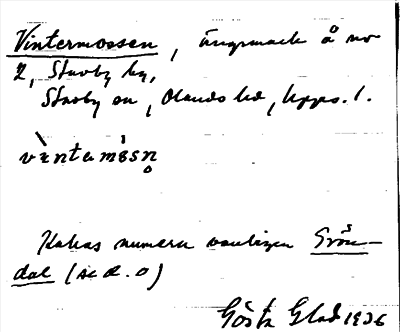 Vintermossen, ängsmark å no
2, Stavby by,
Stavby sn, Olands hd, Upps. l.
vìntəmɔ̀sn̥
Kallas numera vanligen Grön-
dal (se d. o)
Gösta Glad 1936